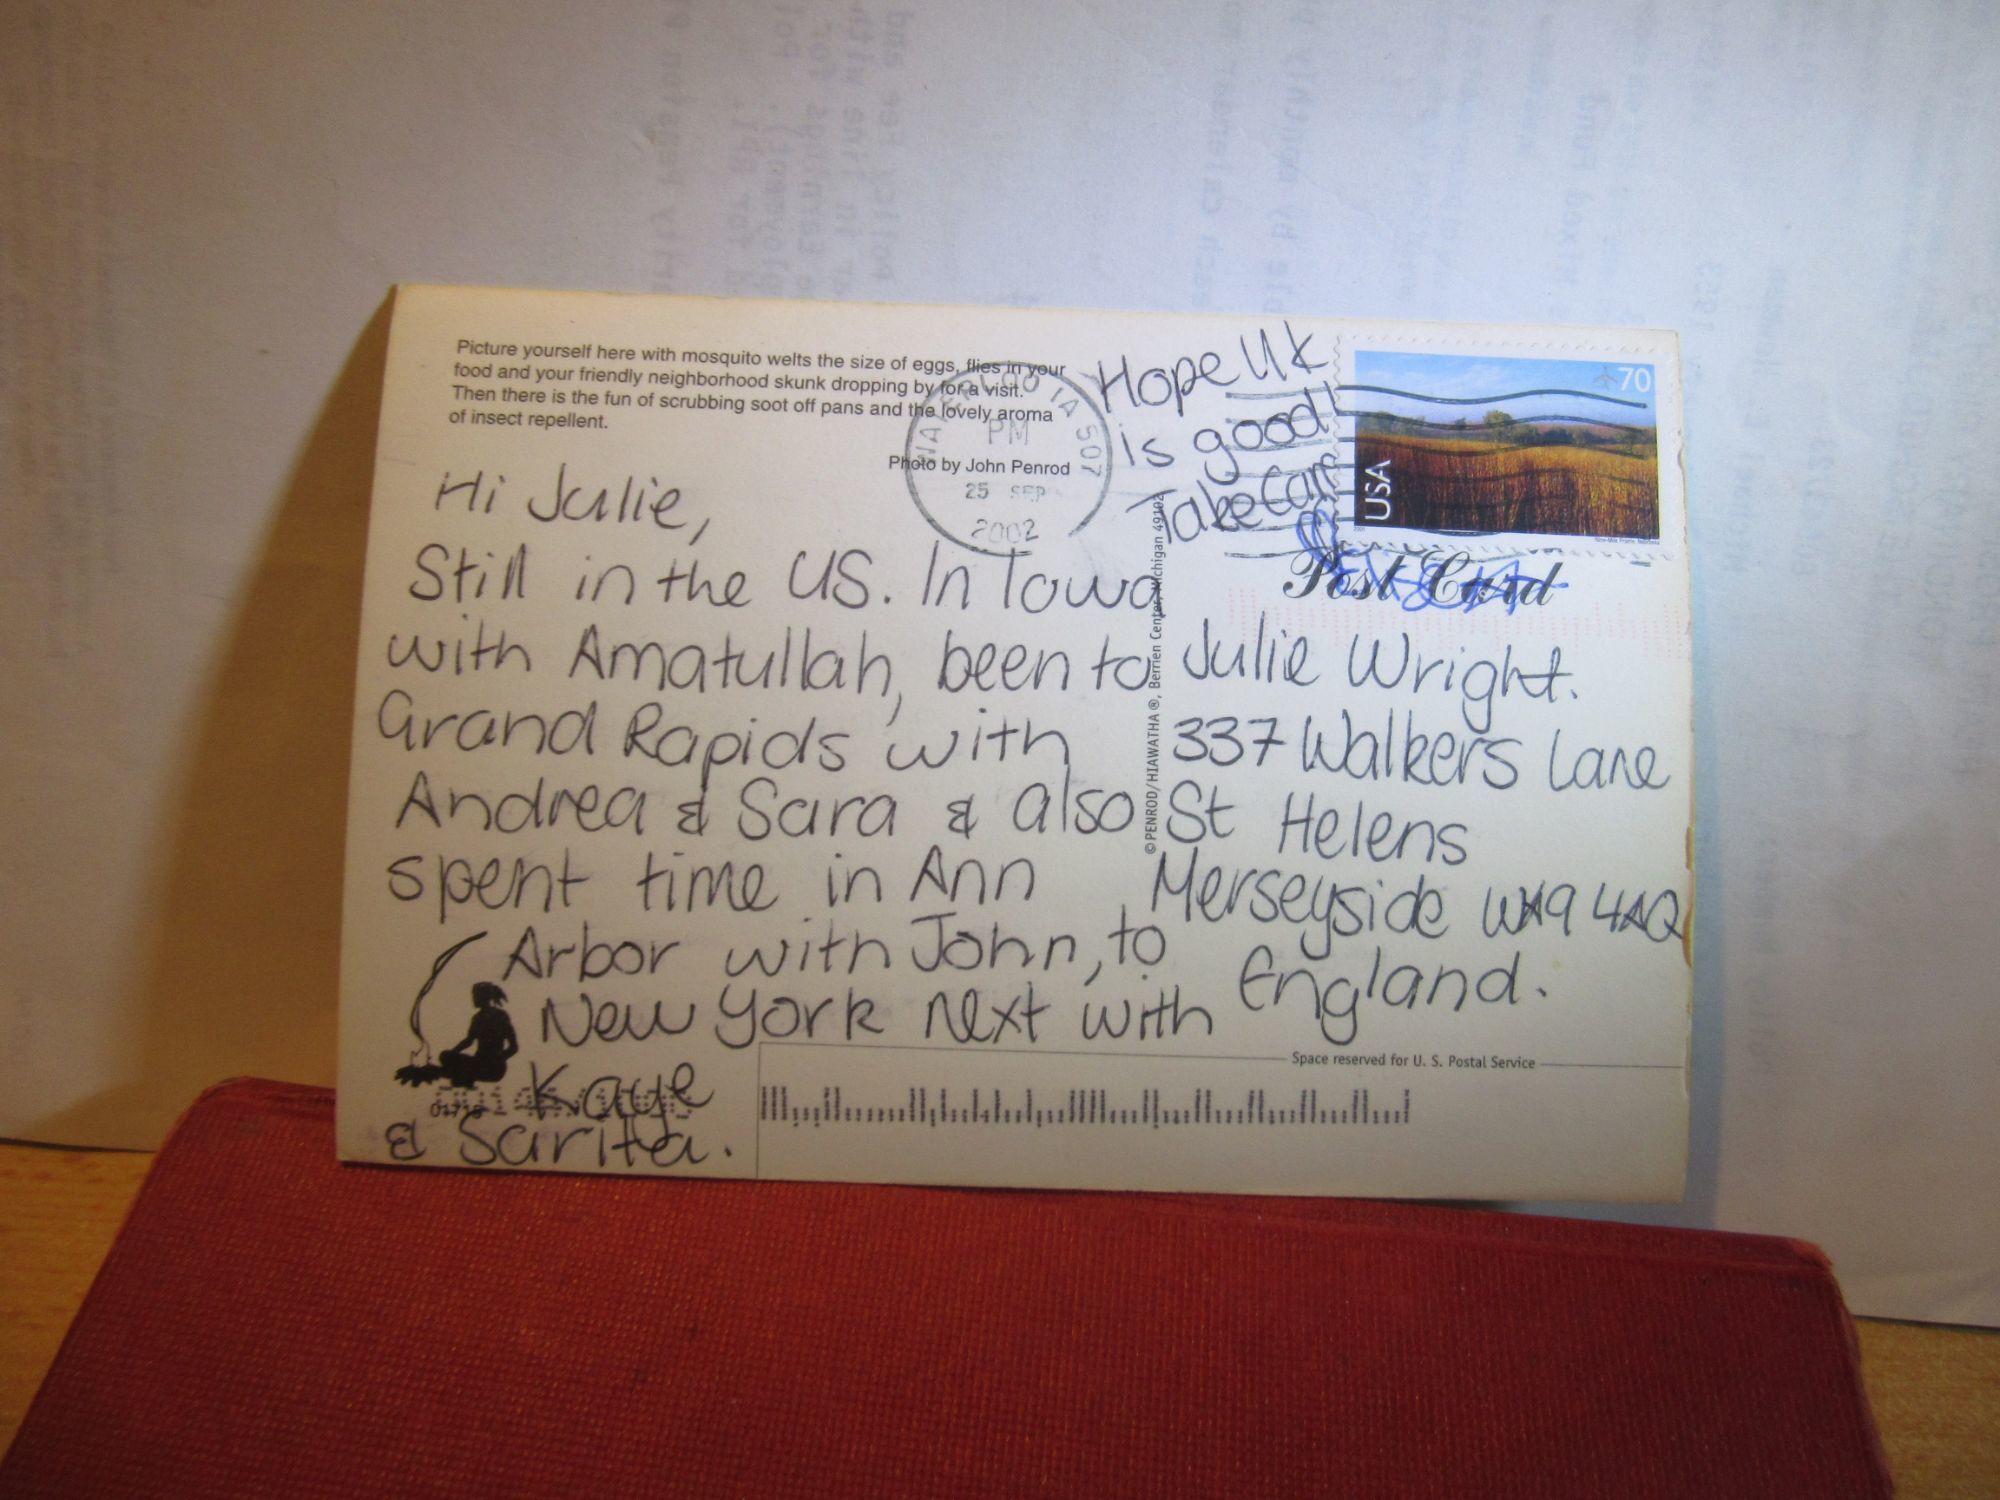 Picture yourself here with mosquito welts the size of eggs, flies in your
food and your friendly neighborhood skunk dropping by for a visit.
Then there is the fun of scrubbing soot off pans and the lovely aroma
of insect repellent.
Photo by John Penrod
WATERLOO IA 507
PM
25 SEP
2002
Hi Julie,
Still in the US. In Iowa
with Amatullah, been to
Grand Rapids with
Andrea & Sara & also
spent time in Ann
Arbor with John, to
New York next with
Kaye
& Sarita.
Hope UK
is good!
Take Care
70
USA
Post Card
©PENROD/HIAWATHA ®, Berrien Center, Michigan 49102
Julie Wright.
337 Walkers Lane
St Helens
Merseyside WA9 4AQ
England.
Space reserved for U. S. Postal Service